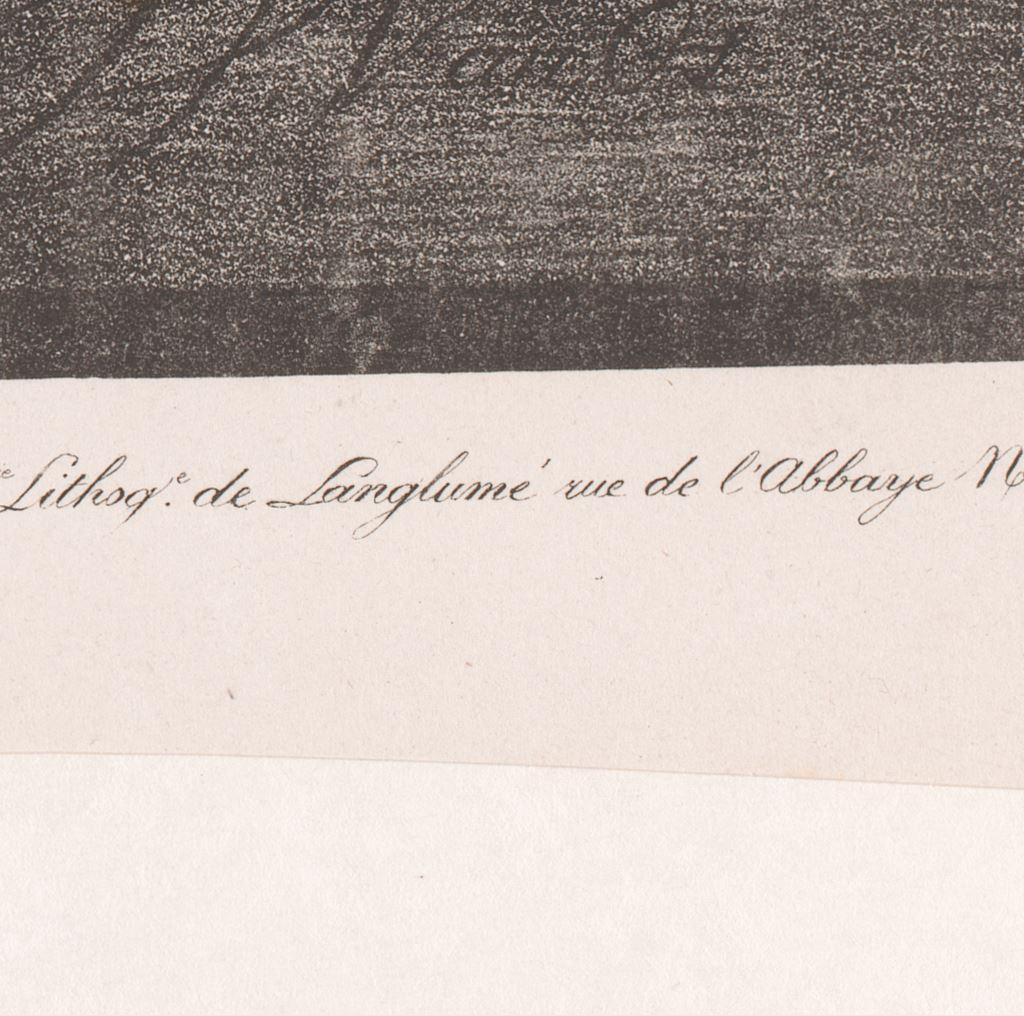 Lithogᵉ. de Langlumé rue de l'Abbaye N